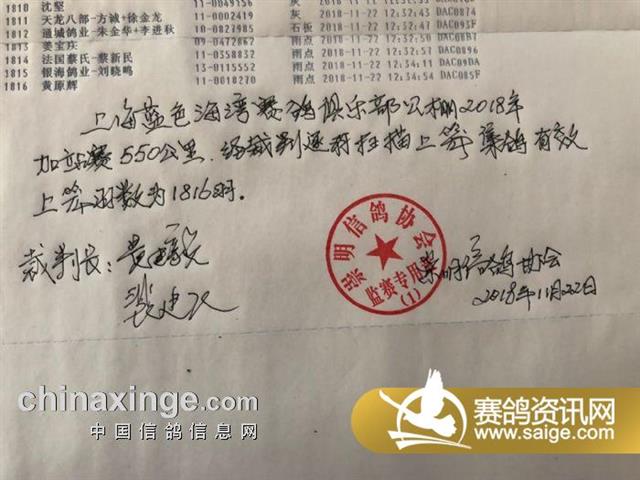 1810 沈坚 11-0049156 灰 2018-11-22 12:
1811 天龙八部-方诚+徐金龙 11-0002419 灰 2018-11-22 12:3 DAC0874
1812 通城鸽业-朱金华+李进秋 10-0827985 石板 2018-11-22 12:3 DAC0
1813 姜宝庆 09-0472862 雨点 2018-11-22 12:32:4 DAC0EB7
1814 法国蔡氏-蔡新民 11-0358832 雨点 2018-11-22 12:32:51 DAC0896
1815 银海鸽业-刘晓鸣 13-0115552 雨点 2018-11-22 12:32:53 DAC09DA
1816 黄原辉 11-0018270 雨点 2018-11-22 12:34:57 DAC085F
上海蓝色海湾赛鸽俱乐部公棚2018年
加站赛550公里.经裁判逐羽扫描上笼集鸽有效
上笼羽数为1816羽.
裁判长:黄
崇明信鸽协会
监赛专用章
(1)
崇明信鸽协会
2018年11月22日
chinaxinge.com
中国信鸽信息网
赛鸽资讯网
www.saige.com